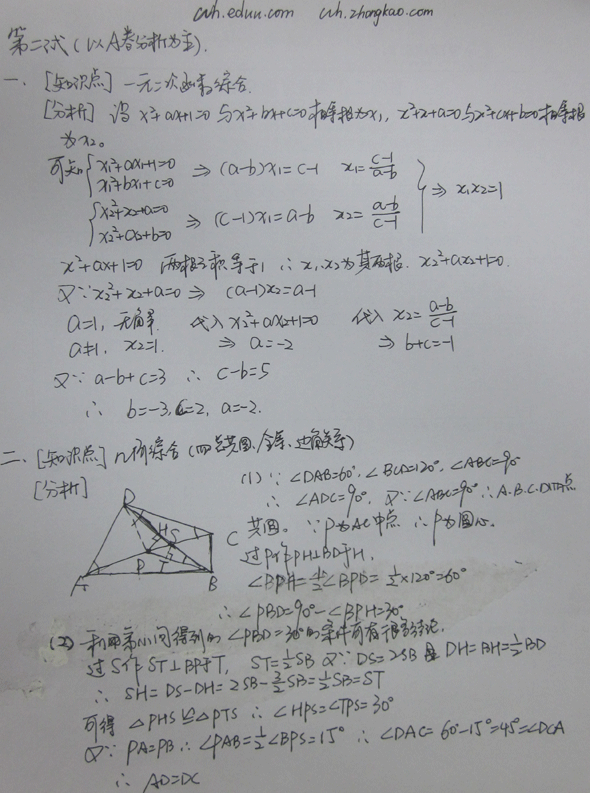 wh.eduu.com wh.zhongkao.com
第二试(以A卷分析为主).
一、[知识点] 一元二次函数综合.
[分析] 设 x²+ax+1=0 与 x²+bx+c=0 相等根为x₁, x²+x+a=0与x²+cx+b=0相等根
为x₂。
可知 x₁²+ax₁+1=0 ⇒ (a-b)x₁=c-1 x₁=c-1/a-b
x₁²+bx₁+c=0
⇒ x₁x₂=1
x₂²+x₂+a=0 ⇒ (c-1)x₂=a-b x₂=a-b/c-1
x₂²+cx₂+b=0
x²+ax+1=0 两根之积等于1 ∴ x₁,x₂为其两根. x₂²+ax₂+1=0.
又∵x₂²+x₂+a=0 ⇒ (a-1)x₂=a-1
a=1, 无解. 代入 x₂²+ax₂+1=0 代入 x₂=a-b/c-1
a≠1, x₂=1. ⇒ a=-2 ⇒ b+c=-1
又∵ a-b+c=3 ∴ c-b=5
∴ b=-3, c=2, a=-2.
二、[知识点] 几何综合(四点共圆、全等、边角关系)
[分析]
(1) ∵ ∠DAB=60°, ∠BCD=120°, ∠ABC=90°
∴ ∠ADC=90°, 又∵∠ABC=90° ∴A.B.C.D四点
共圆。 ∵P为AC中点 ∴P为圆心.
过P作PH⊥BD于H.
∠BPH=½∠BPD=½×120°=60°
∴∠PBD=90°-∠BPH=30°
D H S C P T A B
(2) 利用第(1)问得到的∠PBD=30°的条件可有很多结论.
过S作ST⊥BP于T, ST=½SB 又∵DS=2SB 且 DH=BH=½BD
∴ SH=DS-DH=2SB-3/2SB=½SB=ST
可得 △PHS≌△PTS ∴∠HPS=∠TPS=30°
又∵ PA=PB ∴∠PAB=½∠BPS=15° ∴∠DAC=60°-15°=45°=∠DCA
∴ AD=DC